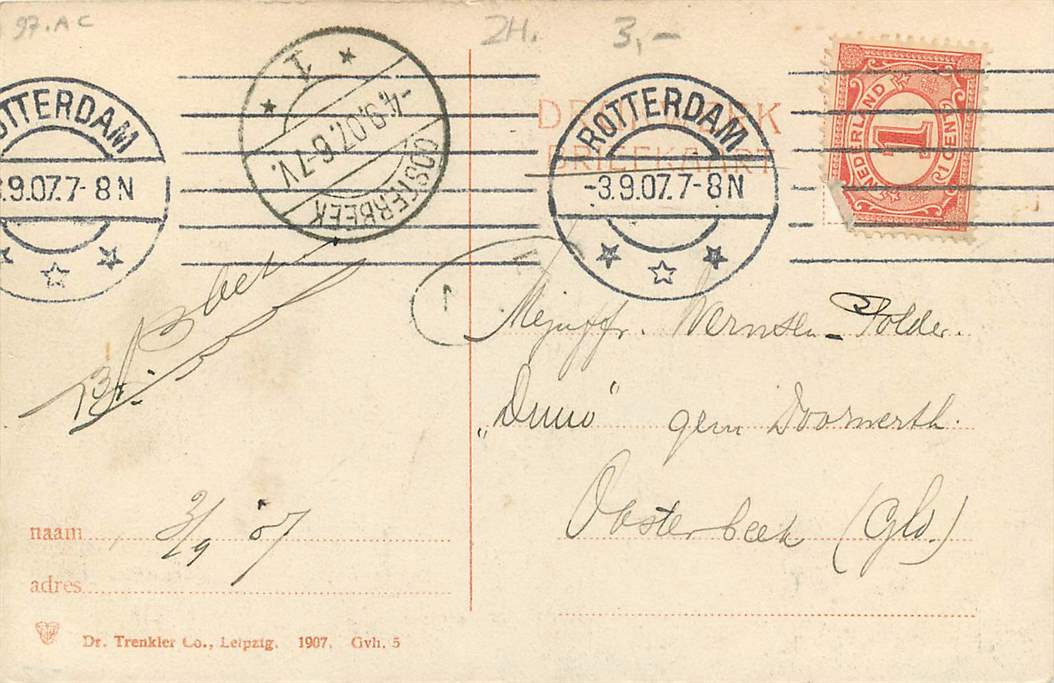 97.AC
ZH. 3,-
ROTTERDAM
3.9.07.7-8N
OOSTERBEEK
-4.9.07.6-7V.
1
ROTTERDAM
-3.9.07.7-8N
DRUKWERK
BRIEFKAART
NEDERLAND
1
(1 CENT)
1
Mejuffr. Wernsen-Polder.
„Duno" gem Doorwerth.
Oosterbeek (Gld.)
3/9 07
naam
adres
Dr. Trenkler Co., Leipzig. 1907. Gvh. 5